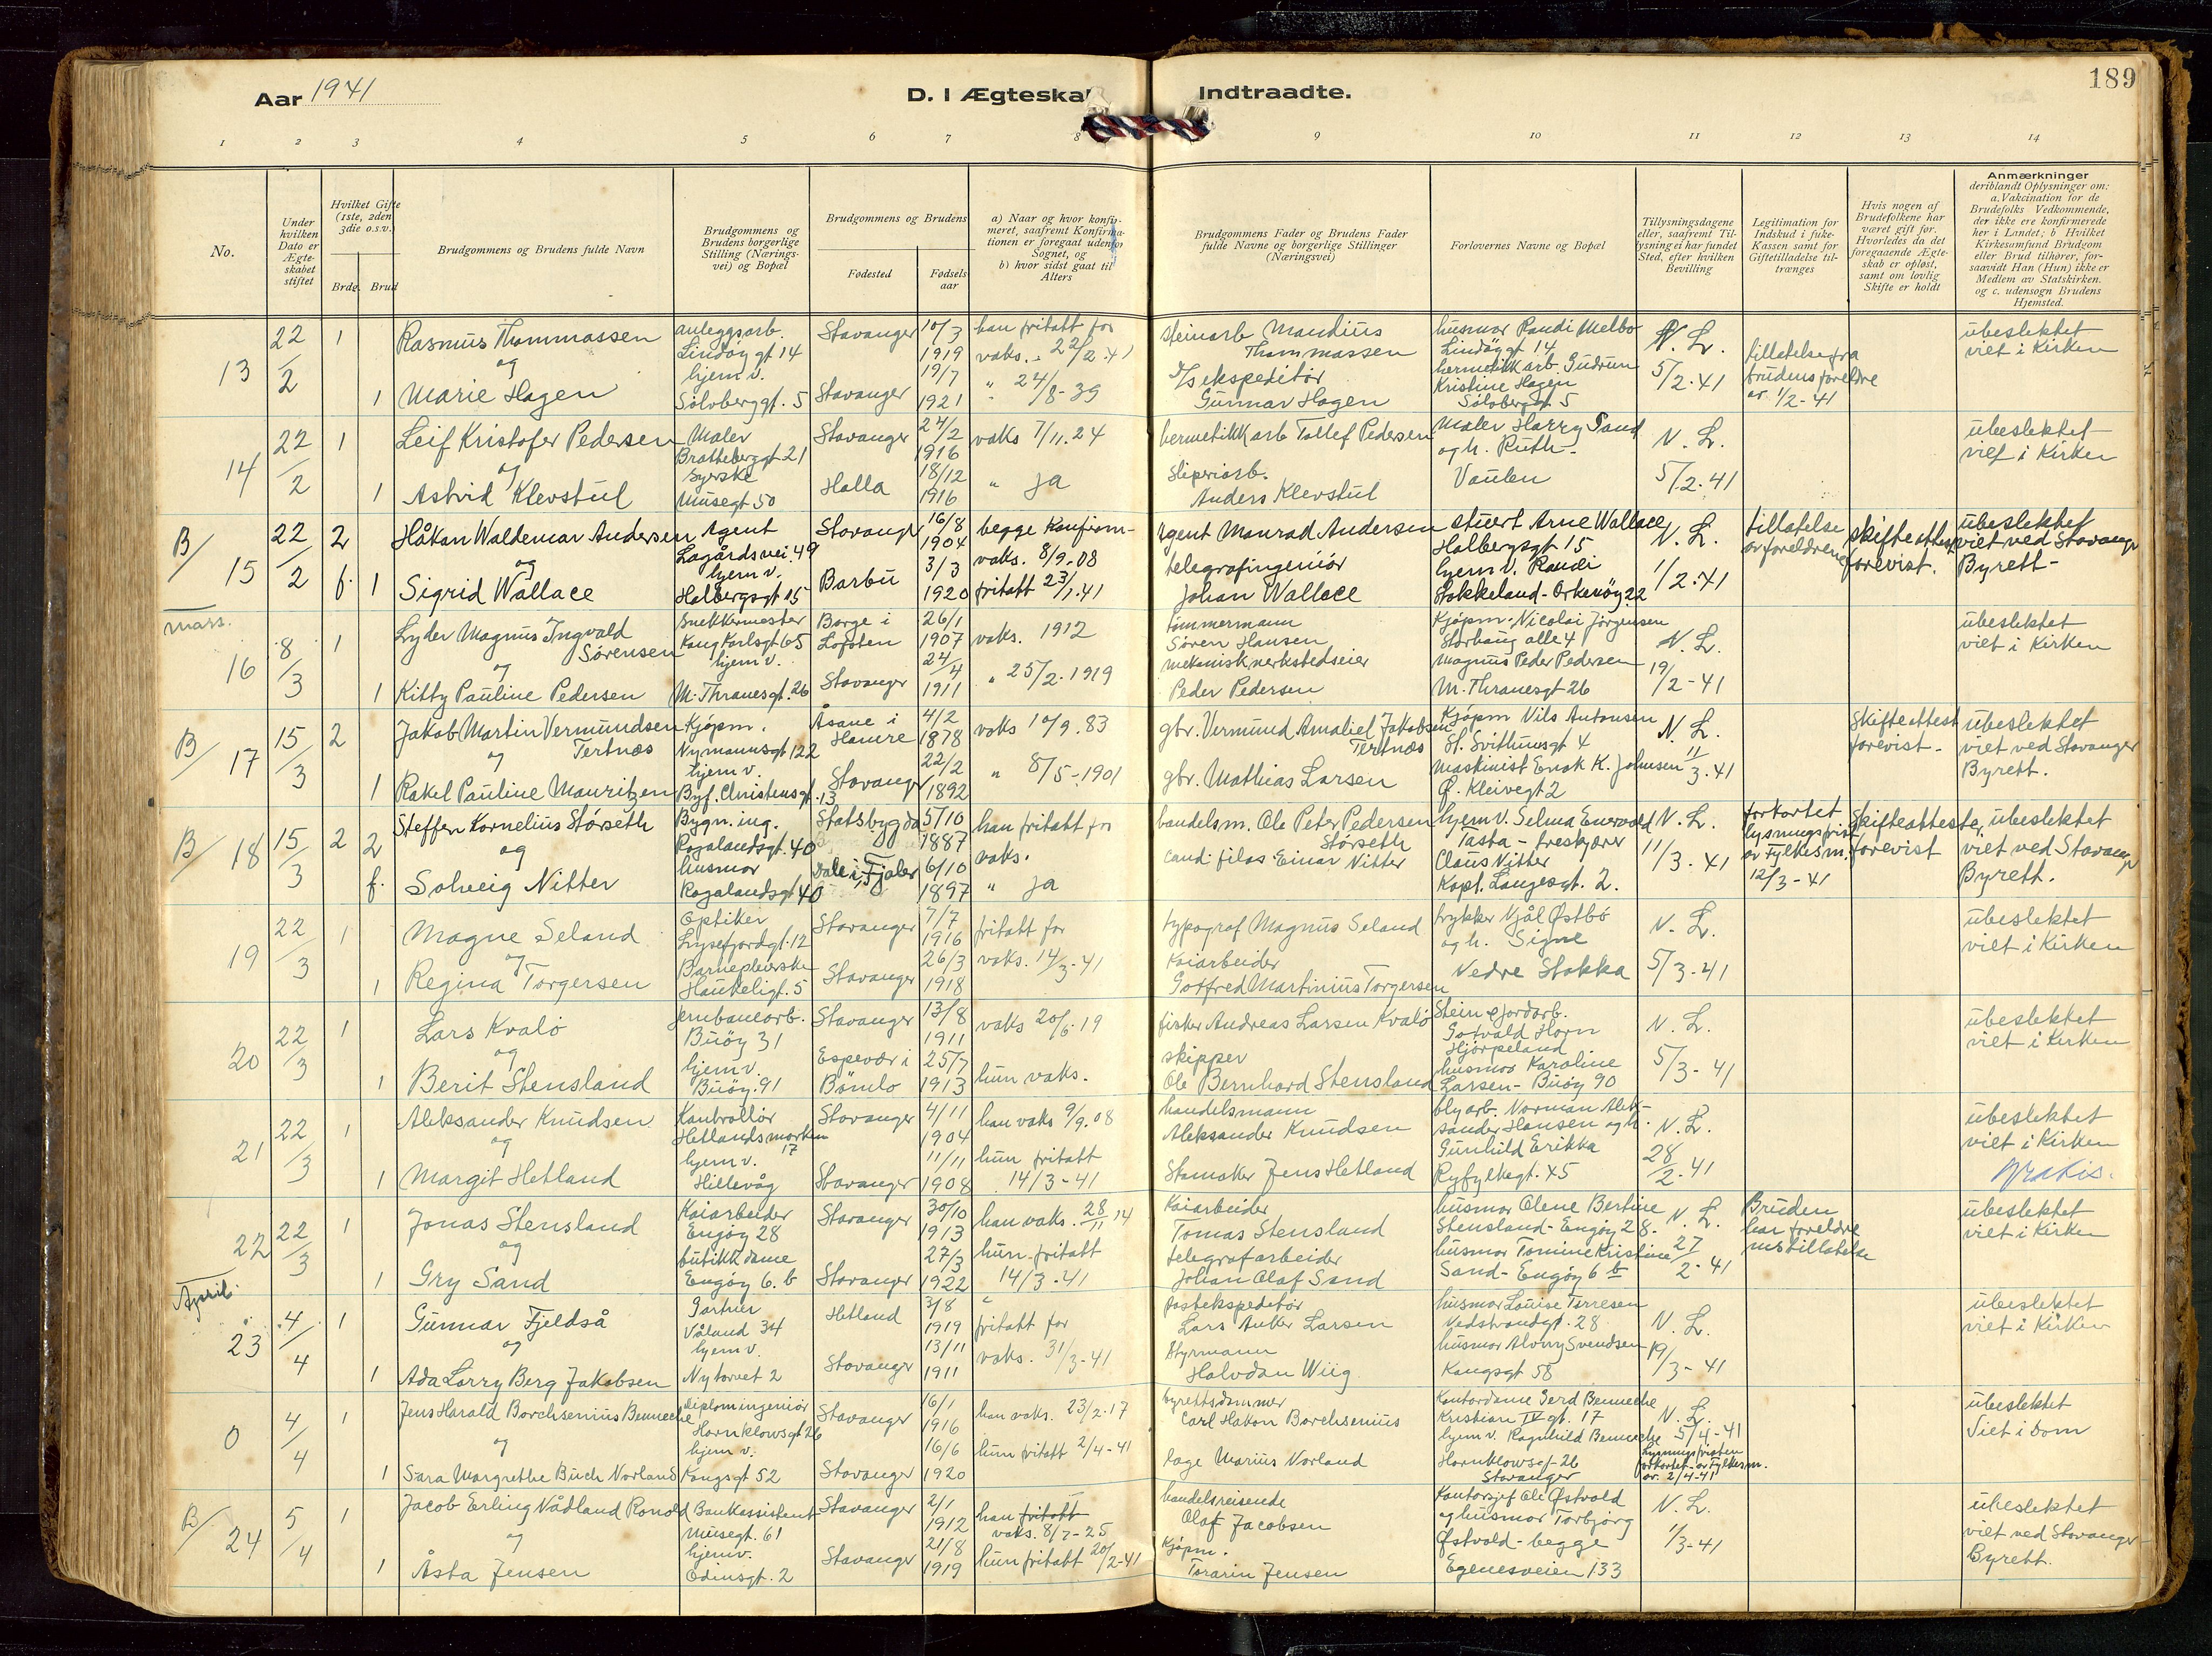 189
Aar 1941
D. I Ægteskab Indtraadte.
1 2 3 4 5 6 7 8 9 10 11 12 13 14
No.
Under hvilken Dato er Ægteskabet stiftet
Hvilket Gifte (1ste, 2den 3die o.s.v.)
Brdg. Brud
Brudgommens og Brudens fulde Navn
Brudgommens og Brudens borgerlige Stilling (Næringsvei) og Bopæl
Brudgommens og Brudens
Fødested
Fødselsaar
a) Naar og hvor konfirmeret, saafremt Konfirmationen er foregaat udenfor Sognet, og b) hvor sidst gaat til Alters
Brudgommens Fader og Brudens Fader fulde Navne og borgerlige Stillinger (Næringsvei)
Forlovernes Navne og Bopæl
Tillysningsdagene eller, saafremt Tillysning ei har fundet Sted, efter hvilken Bevilling
Legitimation for Indskud i Enke-Kassen samt for Giftetilladelse tiltrænges
Hvis nogen af Brudefolkene har været gift før. Hvorledes da det foregaaende Ægteskab er opløst, samt om lovlig Skifte er holdt
Anmærkninger
deriblandt Oplysninger om: a. Vakcination for de Brudefolks Vedkommende, der ikke ere konfirmerede her i Landet; b Hvilket Kirkesamfund Brudgom eller Brud tilhører, forsaavidt Han (Hun) ikke er Medlem av Statskirken. og c. udensogn Brudens Hjemsted.
13 22/2 1 Rasmus Thommassen anleggsarb. Lindøygt 14 Stavanger 10/3 1919 han fritatt for vaks. - 22/2.41 steinarb Mandius Thommassen husmor Randi Melbo Lindøygt 14 N. L. 5/2.41 tillatelse fra brudens foreldre av 1/2-41 ubeslektet viet i Kirken
og
1 Marie Hagen hjem v. Sølvberggt. 5 Stavanger 19/7 1921 " 24/8-39 ekspeditør Gunnar Hagen hermetikk arb. Gudrun Kristine Hagen Sølvberggt 5
14 22/2 1 Leif Kristofer Pedersen Maler Brattebergt 21 Stavanger 24/2 1916 vaks 7/11.24 hermetikk arb Tollef Pedersen Maler Harry Sand og h. Ruth - Vaulen N. L. 5/2.41 ubeslektet viet i Kirken
og
1 Astrid Klevstul Syerske Musegt 50 Holla 18/12 1916 " ja Sliperiarb. Anders Klevstul
B/ 15 22/2 2 Håkan Waldemar Andersen Agent Lagårdsvei. 49 Stavanger 16/8 1904 begge Konfirm- vaks. 8/9.08 Agent Monrad Andersen stuert Arne Wallace Holbergsgt 15 N. L. 1/2.41 tillatelse av foreldrene skifteattest forevist. ubeslektet viet ved Stavanger Byrett-
og
f. 1 Sigrid Wallace hjem v. Holbergsgt 15 Barbu 3/3 1920 fritatt 23/1.41 telegrafingeniör Johan Wallace hjem v. Randi Stokkeland - Orkenöy 22
mars.
16 8/3 1 Lyder Magnus Ingvald Sørensen Snekkermester Kong Karlsgt 65 Borge i Lofoten 26/1 1907 vaks. 1912 tømmermann Søren Hansen Kjøpm. Nicolai Jörgensen Storhaug alle 4 N. L. 19/2-41 ubeslektet viet i Kirken
og
1 Kitty Pauline Pedersen hjem v. M. Thranesgt. 26 Stavanger 24/4 1911 " 25/2.1919 mekanisk verkstedseier Peder Pedersen Magnus Peder Pedersen M. Thranesgt 26
B/ 17 15/3 2 Jakob Martin Vermundsen Tertnæs Kjøpm. Nymannsgt 122 Åsane i Hamre 4/2 1878 vaks 10/9.83 gbr. Vermund Amaliel Jakobsen Tertnæs Kjøpm Nils Antonsen St. Svithunsgt 4 N. L. 11/3.41 skifteattest forevist - ubeslektet viet ved Stavanger Byrett.
og
1 Rakel Pauline Mauritzen hjem v. Byf. Christensgt. 13 Stavanger 22/2 1892 " 8/5-1901 gbr. Mathias Larsen Maskinist Enok K. Johnsen Ø. Kleivegt 2
B/ 18 15/3 2 2 Steffen Kornelius Störseth Bygn. ing. Rogalandsgt. 40 Statsbygda 5/10 1887 han fritatt for vaks. handelsm. Ole Peter Pedersen Störseth hjem v. Selma Enevold Tasta - treskjærer N. L. 11/3.41 forkortet lysningsfrist av Fylkesm. 12/3-41 Skifteattester forevist ubeslektet viet ved Stavanger Byrett.
og
f. Solveig Nitter husmor Rogalandsgt 40 Dale i Fjaler 6/10 1897 " ja cand. filos Einar Nitter Claus Nitter Kapt. Langesgt. 2.
19 22/3 1 Magne Seland Optiker Lysefjordgt. 12 Stavanger 7/7 1916 fritatt for vaks. 14/3-41 typograf Magnus Seland trykker Njål Østbö og h. Signe Nedre Stokka N. L. 5/3-41 ubeslektet viet i Kirken
og
1 Regina Torgersen Barnepleierske Haukeligt. 5 Stavanger 26/3 1918 Kaiarbeider Gotfred Martinius Torgersen
20 22/3 1 Lars Kvalö jernbanearb. Buöy 31 Stavanger 13/8 1911 vaks 20/6.19 fisker Andreas Larsen Kvalö Stein & jordarb. Gotvald Horn Hjörpeland N. L. 5/3-41 ubeslektet viet i Kirken
og
1 Berit Stensland hjem v. Buöy. 91 Espevær i Bömlo 25/7 1913 hun vaks. skipper Ole Bernhard Stensland husmor Karoline Larsen - Buöy 90
21 22/3 1 Aleksander Knudsen Kontrollör Hetlandsmarken 17 Stavanger 4/11 1904 han vaks 9/9.08 handelsmann Aleksander Knudsen blyarb. Norman Aleksander Hansen og h. Gunhild Erikka Ryfylkegt. 45 N. L. 28/2.41 ubeslektet viet i Kirken
og
1 Margit Hetland hjem v. Hillevåg Stavanger 11/11 1908 hun fritatt 14/3-41 Skomaker Jens Hetland Gratis.
22 22/3 1 Jonas Stensland Kaiarbeider Engöy 28 Stavanger 30/10 1913 han vaks. 28/11 14 Kaiarbeider Tomas Stensland husmor Olene Bertine Stensland - Engöy 28. N. L. 27/2.41 Bruden har foreldrenes tillatelse ubeslektet viet i Kirken
og
1 Gry Sand butikkdame Engöy 6. b Stavanger 27/3 1922 hun fritatt 14/3-41 telegrafarbeider Johan Olaf Sand husmor Tomine Kristine Sand - Engöy 6 b
April.
23 4/4 1 Gunnar Fjeldså Gartner Våland 34 Hetland 3/8 1919 fritatt for vaks. 31/3-41 postekspeditör Lars Anker Larsen husmor Louise Torresen Vedstrandgt. 28 N. L. 19/3-41 ubeslektet viet i Kirken
og
1 Ada Lorry Berg Jakobsen hjem v. Nytorvet 2 Stavanger 13/11 1911 Styrmann Halvdan Wiig husmor Alvny Svendsen Kongsgt 58
0 4/4 1 Jens Harald Borchsenius Bennecke Diplomingeniör Hornklowsgt 26 Stavanger 16/1 1916 han vaks. 23/2.17 byrettsdommer Carl Hakon Borchsenius Kontordame Gerd Bennecke Kristian IV gt. 17 N. L. 5/4-41 ubeslektet Viet i Dom
og
1 Sara Margrethe Buch Norland hjem v. Kongsgt 52 Stavanger 16/6 1920 hun fritatt 2/4-41 lege Marius Norland hjem v. Ragnhild Bennecke Hornklowsgt 26 Stavanger Lysningsfristen forkortet av Fylkesm. av. 2/4-41
B/ 24 5/4 1 Jacob Erling Nådland Ronold Bankassistent Musegt. 61 Stavanger 2/1 1912 han fritatt vaks. 8/7-25 handelsreisende Olaf Jacobsen Kontorsjef Ole Østvold og husmor Torbjörg Østvold - begge Egenesveien 133 N. L. 1/3-41 ubeslektet viet ved Stavanger Byrett.
og
1 Åsta Jensen hjem v. Odinsgt. 2 Stavanger 21/8 1919 hun fritatt 20/2-41 Kjøpm. Torarin Jensen